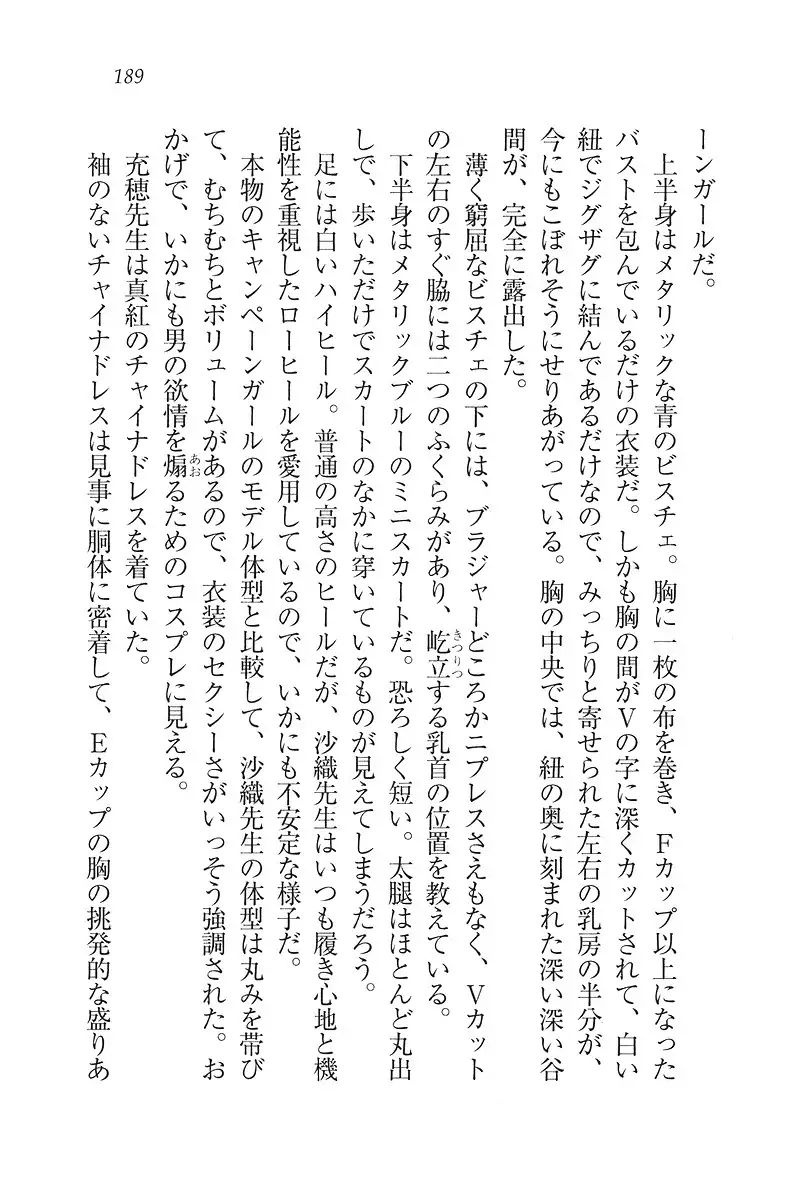 189
ーンガールだ。
上半身はメタリックな青のビスチェ。胸に一枚の布を巻き、Ｆカップ以上になった
バストを包んでいるだけの衣装だ。しかも胸の間がＶの字に深くカットされて、白い
紐でジグザグに結んであるだけなので、みっちりと寄せられた左右の乳房の半分が、
今にもこぼれそうにせりあがっている。胸の中央では、紐の奥に刻まれた深い深い谷
間が、完全に露出した。
薄く窮屈なビスチェの下には、ブラジャーどころかニプレスさえもなく、Ｖカット
の左右のすぐ脇には二つのふくらみがあり、屹立きつりつする乳首の位置を教えている。
下半身はメタリックブルーのミニスカートだ。恐ろしく短い。太腿はほとんど丸出
しで、歩いただけでスカートのなかに穿いているものが見えてしまうだろう。
足には白いハイヒール。普通の高さのヒールだが、沙織先生はいつも履き心地と機
能性を重視したローヒールを愛用しているので、いかにも不安定な様子だ。
本物のキャンペーンガールのモデル体型と比較して、沙織先生の体型は丸みを帯び
て、むちむちとボリュームがあるので、衣装のセクシーさがいっそう強調された。お
かげで、いかにも男の欲情を煽あおるためのコスプレに見える。
充穂先生は真紅のチャイナドレスを着ていた。
袖のないチャイナドレスは見事に胴体に密着して、Ｅカップの胸の挑発的な盛りあ